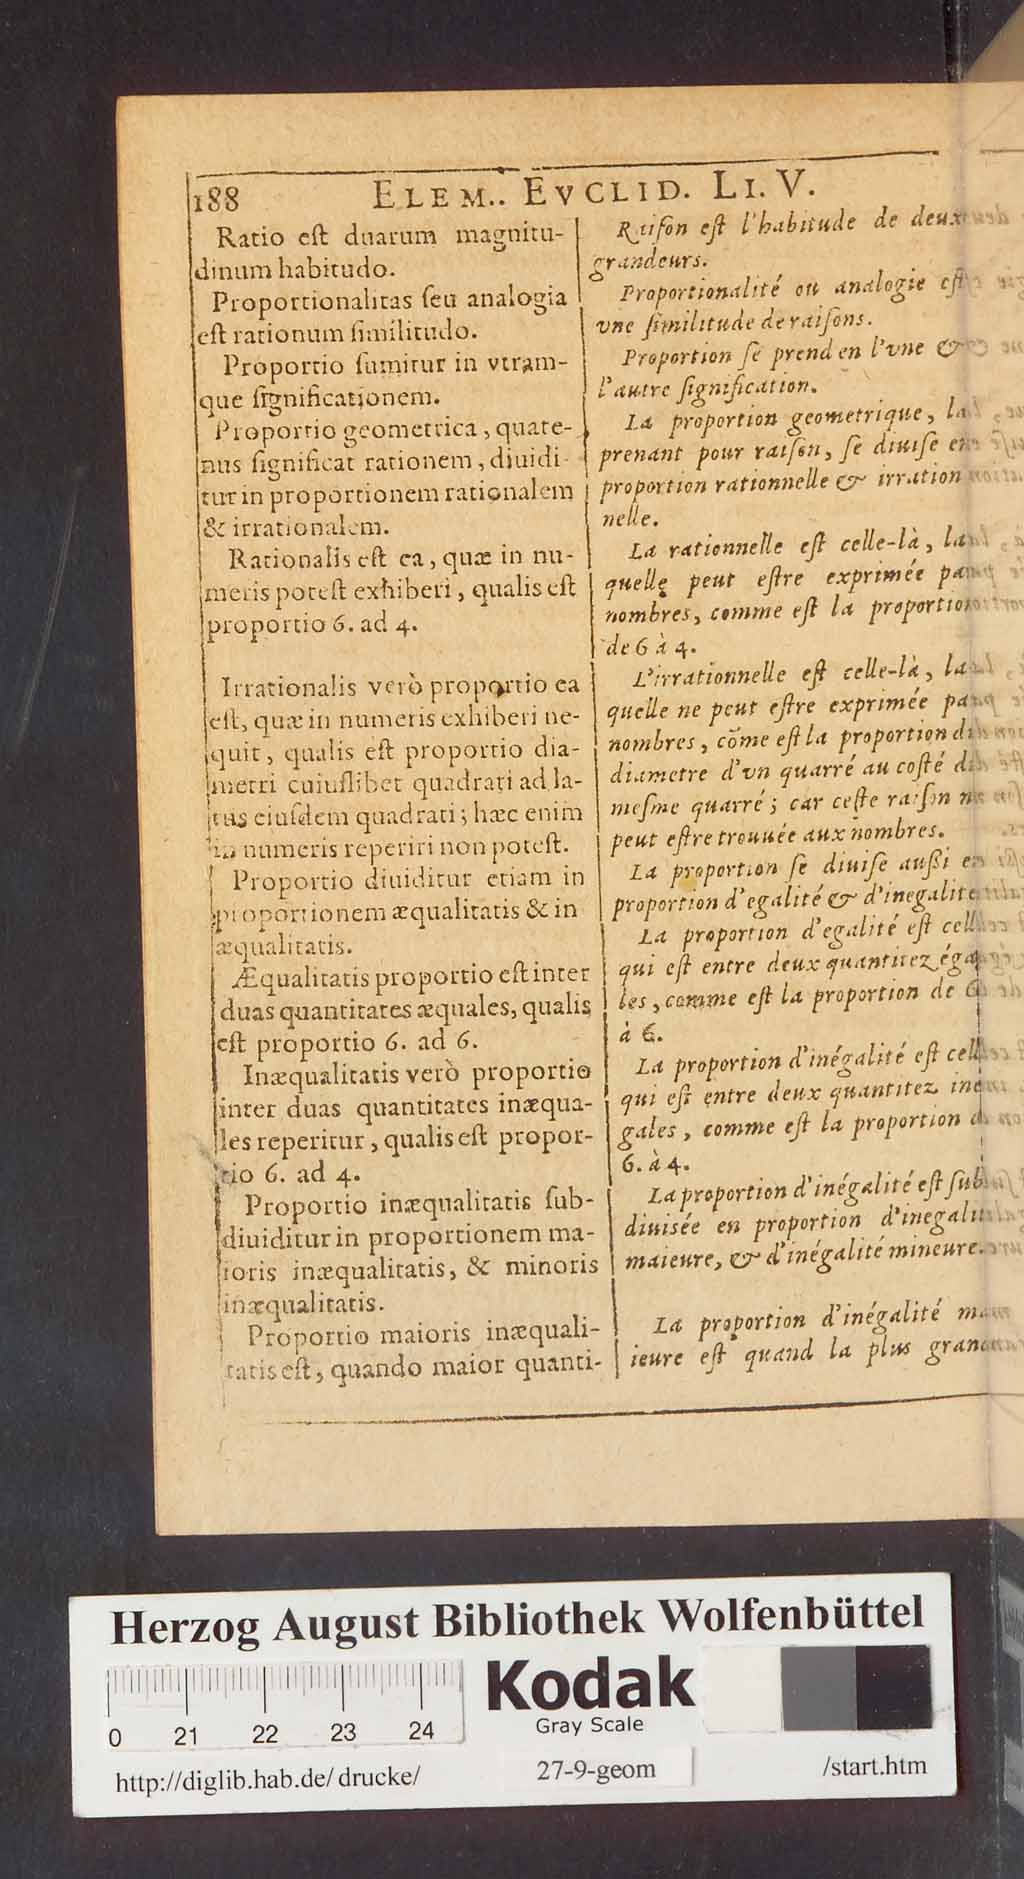 188 ELEM.. EVCLID. LI. V.
Ratio eſt duarum magnitu-
dinum habitudo.
Proportionalitas ſeu analogia
eſt rationum ſimilitudo.
Proportio ſumitur in vtram-
que ſignificationem.
Proportio geometrica, quate-
nus ſignificat rationem, diuidi-
tur in proportionem rationalem
& irrationalem.
Rationalis eſt ea, quæ in nu-
meris poteſt exhiberi, qualis eſt
proportio 6. ad 4.
Irrationalis verò proportio ea
eſt, quæ in numeris exhiberi ne-
quit, qualis eſt proportio dia-
metri cuiuſlibet quadrati ad la-
tus eiuſdem quadrati; hæc enim
in numeris reperiri non poteſt.
Proportio diuiditur etiam in
proportionem æqualitatis & in
æqualitatis.
Æqualitatis proportio eſt inter
duas quantitates æquales, qualis
eſt proportio 6. ad 6.
Inæqualitatis verò proportio
inter duas quantitates inæqua-
les reperitur, qualis eſt propor-
tio 6. ad 4.
Proportio inæqualitatis ſub-
diuiditur in proportionem ma-
ioris inæqualitatis, & minoris
inæqualitatis.
Proportio maioris inæquali-
tatis eſt, quando maior quanti-
Raiſon eſt l'habitude de deux
grandeurs.
Proportionalité ou analogie eſt
vne ſimilitude de raiſons.
Proportion ſe prend en l'vne &
l'autre ſignification.
La proportion geometrique, la
prenant pour raiſon, ſe diuiſe en
proportion rationnelle & irration
nelle.
La rationnelle eſt celle-là, la
quelle peut eſtre exprimée par
nombres, comme eſt la proportion
de 6 à 4.
L'irrationnelle eſt celle-là, la
quelle ne peut eſtre exprimée par
nombres, cõme eſt la proportion du
diametre d'vn quarré au coſté du
meſme quarré; car ceſte raiſon ne
peut eſtre trouuée aux nombres.
La proportion ſe diuiſe auſſi en
proportion d'egalité & d'inegalité
La proportion d'egalité eſt celle
qui eſt entre deux quantitez éga
les, comme eſt la proportion de 6
à 6.
La proportion d'inégalité eſt celle
qui eſt entre deux quantitez iné
gales, comme eſt la proportion de
6. à 4.
La proportion d'inégalité eſt ſub
diuisée en proportion d'inegalité
maieure, & d'inégalité mineure.
La proportion d'inégalité ma
ieure eſt quand la plus grande
Herzog August Bibliothek Wolfenbüttel
0 21 22 23 24
Kodak
Gray Scale
http://diglib.hab.de/ drucke/ 27-9-geom /start.htm